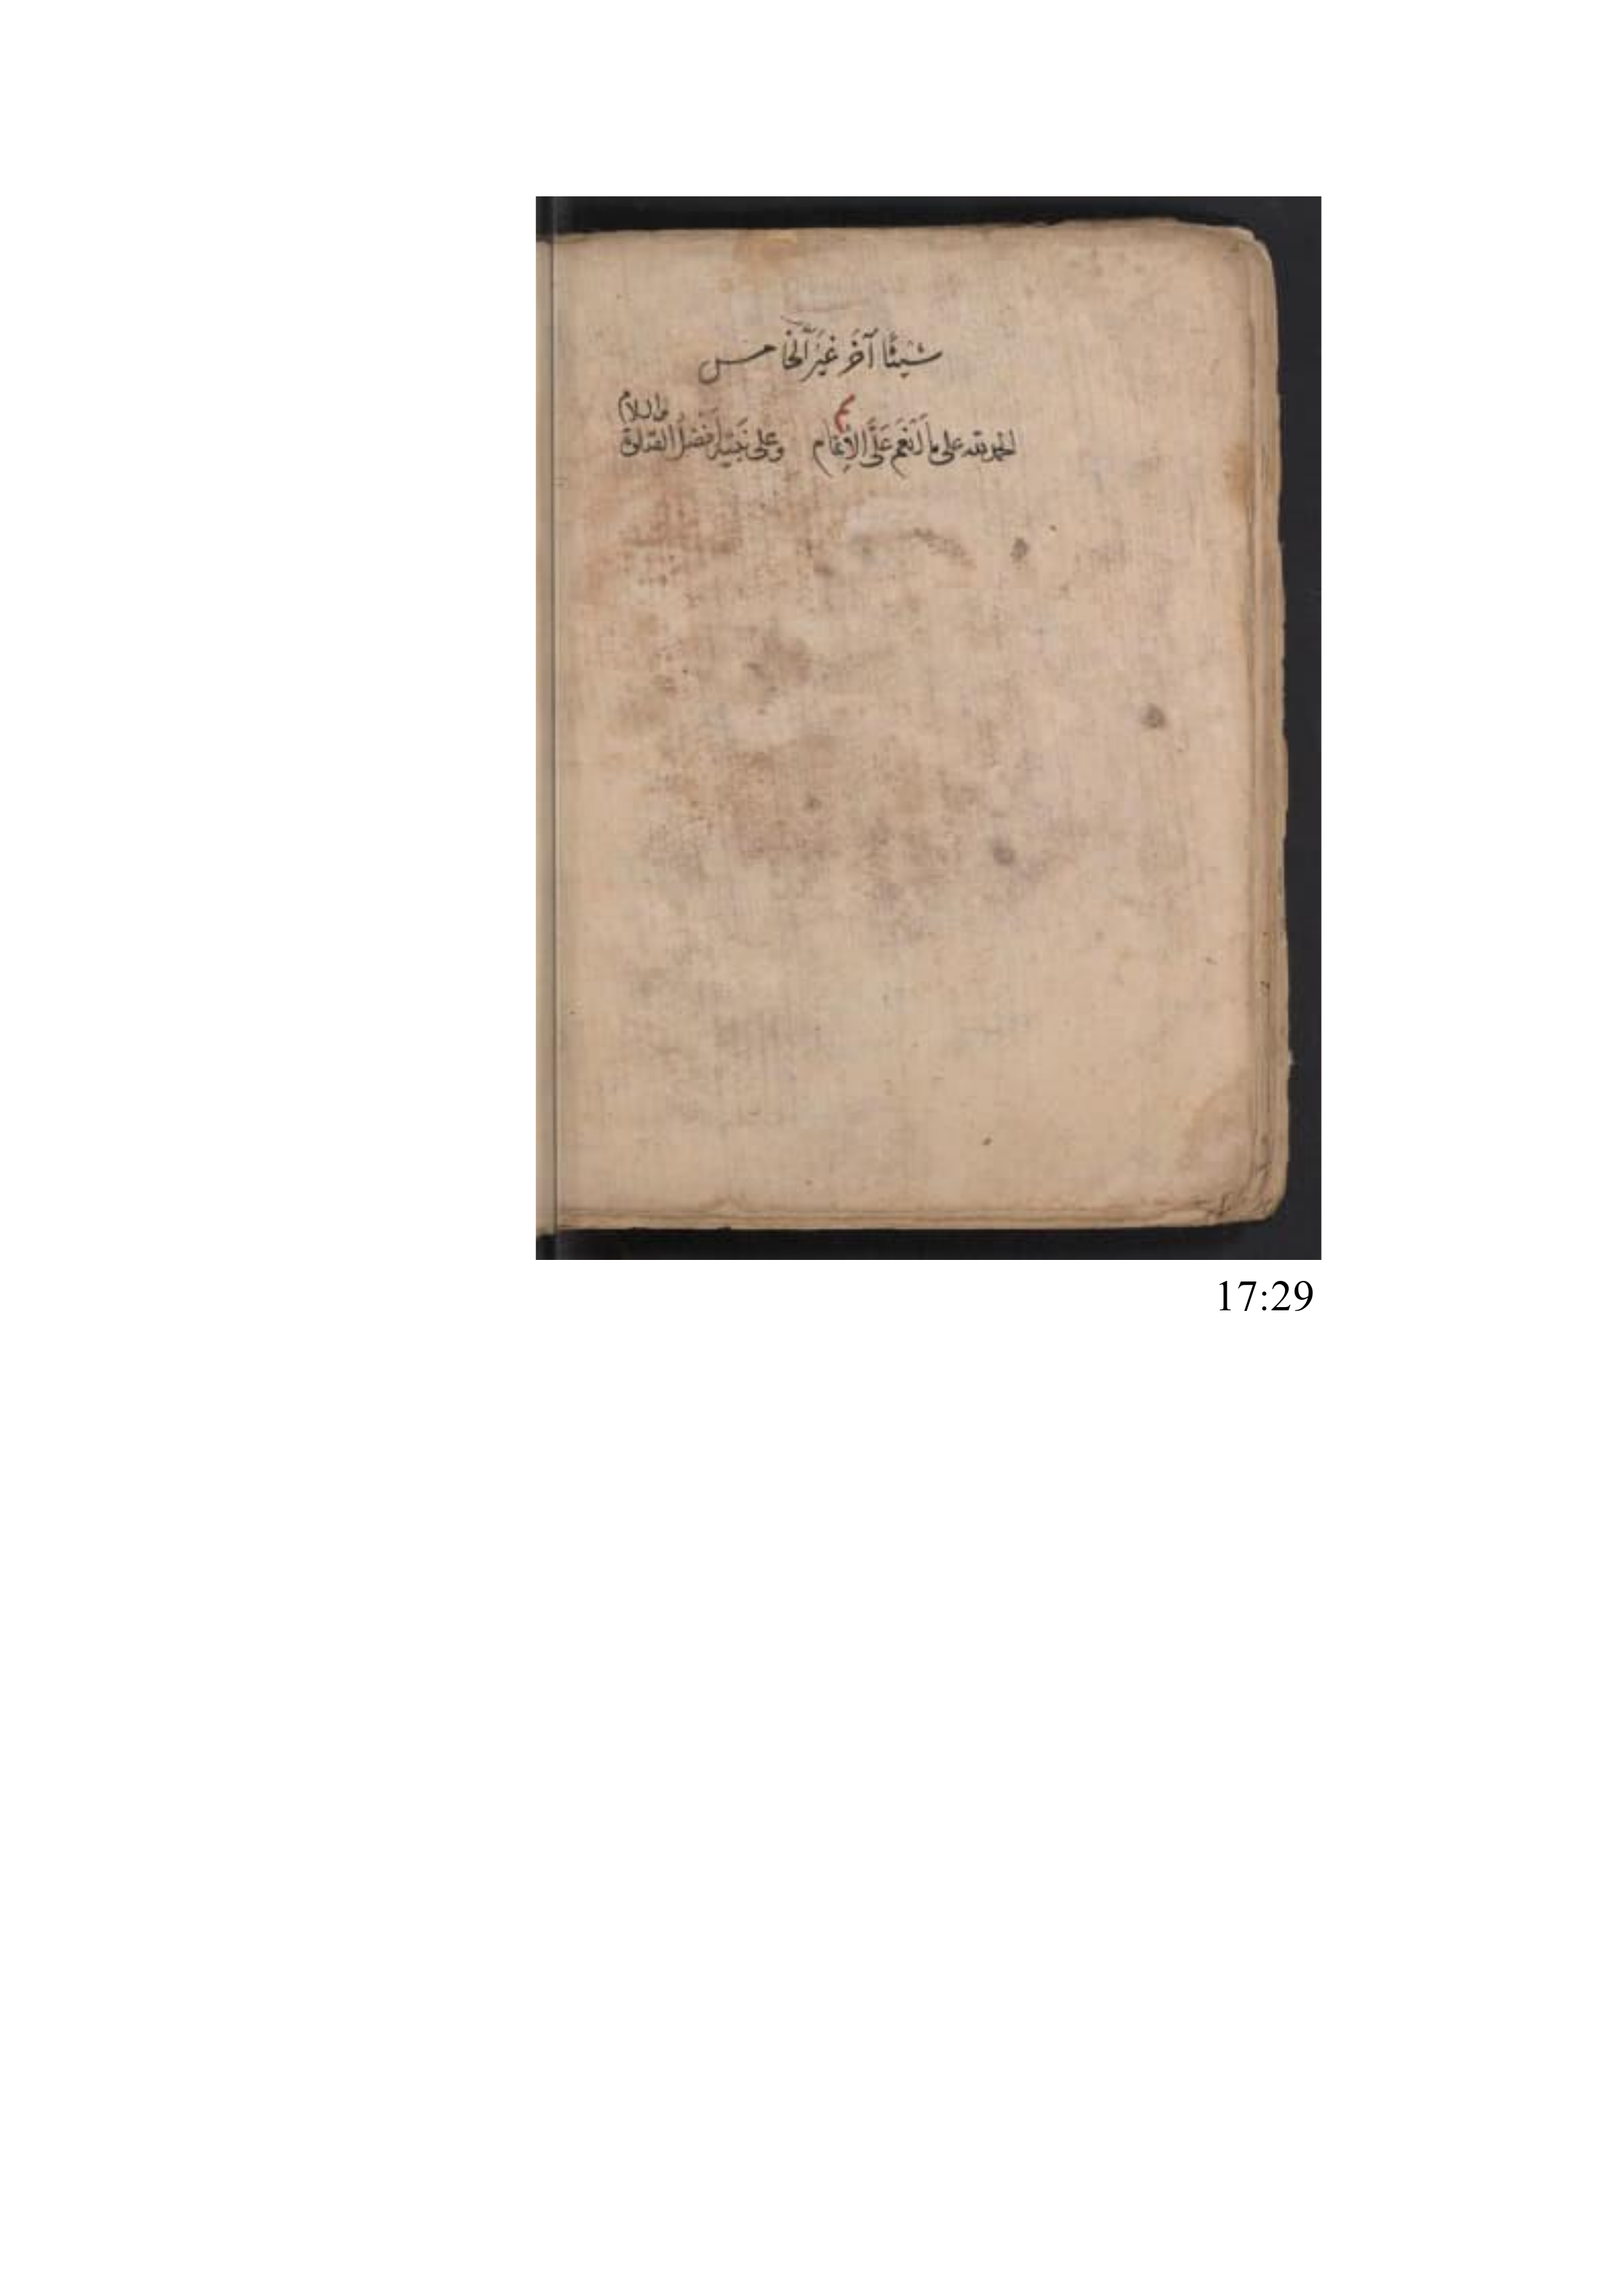 شيئًا آخَر غَيْرَ الْخَامس
الحمد لله على ما اَنْعَمَ عَلَى الاِتمام وعلى نَبيّه اَفضَلُ الصّلوة
والسلام
17:29